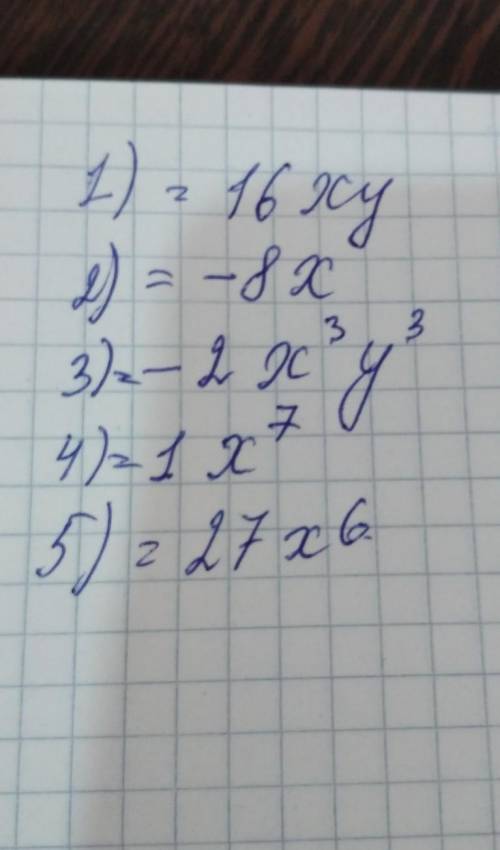 1) = 16xy
2) = -8x
3) = -2x³y³
4) = 1x⁷
5) = 27x⁶